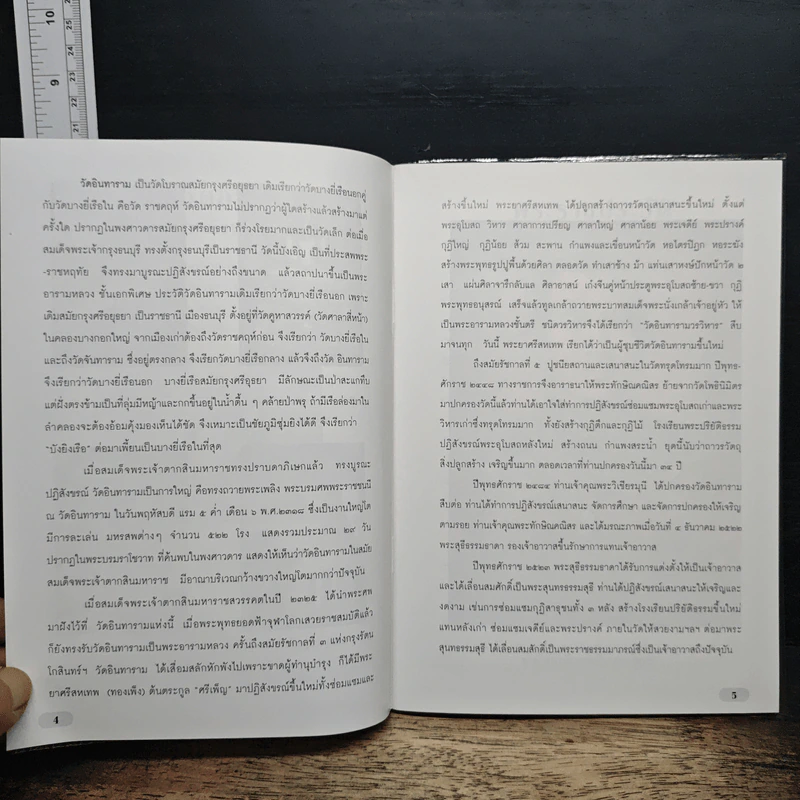 10
9
25
24
23
22
21
วัดอินทาราม เป็นวัดโบราณสมัยกรุงศรีอยุธยา เดิมเรียกว่าวัดบางยี่เรือนอกคู่
กับวัดบางยี่เรือใน คือวัด ราชคฤห์ วัดอินทารามไม่ปรากฏว่าผู้ใดสร้างแล้วสร้างมาแต่
ครั้งใด ปรากฏในพงศาวดารสมัยกรุงศรีอยุธยา ก็ร่วงโรยมากและเป็นวัดเล็ก ต่อเมื่อ
สมเด็จพระเจ้ากรุงธนบุรี ทรงตั้งกรุงธนบุรีเป็นราชธานี วัดนี้บังเอิญ เป็นที่ประสพพระ
-ราชหฤทัย จึงทรงมาบูรณะปฏิสังขรณ์อย่างถึงขนาด แล้วสถาปนาขึ้นเป็นพระ
อารามหลวง ชั้นเอกพิเศษ ประวัติวัดอินทารามเดิมเรียกว่าวัดบางยี่เรือนอก เพราะ
เดิมสมัยกรุงศรีอยุธยา เป็นราชธานี เมืองธนบุรี ตั้งอยู่ที่วัดคูหาสวรรค์ (วัดศาลาสี่หน้า)
ในคลองบางกอกใหญ่ จากเมืองเก่าต้องถึงวัดราชคฤห์ก่อน จึงเรียกว่า วัดบางยี่เรือใน
และถึงวัดจันทาราม ซึ่งอยู่ตรงกลาง จึงเรียกวัดบางยี่เรือกลาง แล้วจึงถึงวัด อินทาราม
จึงเรียกว่าวัดบางยี่เรือนอก บางยี่เรือสมัยกรุงศรีอุธยา มีลักษณะเป็นป่าสะแกทึบ
แต่ฝั่งตรงข้ามเป็นที่ลุ่มมีหญ้าและกกขึ้นอยู่ในน้ำตื้น ๆ คล้ายป่าพรุ ถ้ามีเรือล่องมาใน
ลำคลองจะต้องอ้อมคุ้งมองเห็นได้ชัด จึงเหมาะเป็นชัยภูมิซุ่มยิงได้ดี จึงเรียกว่า
"บังยิงเรือ" ต่อมาเพี้ยนเป็นบางยี่เรือในที่สุด
เมื่อสมเด็จพระเจ้าตากสินมหาราชทรงปราบดาภิเษกแล้ว ทรงบูรณะ
ปฏิสังขรณ์ วัดอินทารามเป็นการใหญ่ คือทรงถวายพระเพลิง พระบรมศพพระราชชนนี
ณ วัดอินทาราม ในวันพฤหัสบดี แรม ๕ ค่ำ เดือน ๖ พ.ศ.๒๓๑๘ ซึ่งเป็นงานใหญ่โต
มีการละเล่น มหรสพต่างๆ จำนวน ๕๒๒ โรง แสดงรวมประมาณ ๒๙ วัน
ปรากฏในพระบรมราโชวาท ที่ค้นพบในพงศาวดาร แสดงให้เห็นว่าวัดอินทารามในสมัย
สมเด็จพระเจ้าตากสินมหาราช มีอาณาบริเวณกว้างขวางใหญ่โตมากกว่าปัจจุบัน
เมื่อสมเด็จพระเจ้าตากสินมหาราชสวรรคตในปี ๒๓๒๕ ได้นำพระศพ
มาฝังไว้ที่ วัดอินทารามแห่งนี้ เมื่อพระพุทธยอดฟ้าจุฬาโลกเสวยราชสมบัติแล้ว
ก็ยังทรงรับวัดอินทารามเป็นพระอารามหลวง ครั้นถึงสมัยรัชกาลที่ ๓ แห่งกรุงรัตน
โกสินทร์ฯ วัดอินทาราม ได้เสื่อมสลักหักพังไปเพราะขาดผู้ทำนุบำรุง ก็ได้มีพระ
ยาศรีสหเทพ (ทองเพ็ง) ต้นตระกูล "ศรีเพ็ญ" มาปฏิสังขรณ์ขึ้นใหม่ทั้งซ่อมแซมและ
4
สร้างขึ้นใหม่ พระยาศรีสหเทพ ได้ปลูกสร้างถาวรวัตถุเสนาสนะขึ้นใหม่ ตั้งแต่
พระอุโบสถ วิหาร ศาลาการเปรียญ ศาลาใหญ่ ศาลาน้อย พระเจดีย์ พระปรางค์
กุฏิใหญ่ กุฏิน้อย ส้วม สะพาน กำแพงและเขื่อนหน้าวัด หอไตรปิฎก หอระฆัง
สร้างพระพุทธรูปปูพื้นด้วยศิลา ตลอดวัด ทำเสาช้าง ม้า แท่นเสาหงษ์ปักหน้าวัด ๒
เสา แผ่นศิลาจารึกลับแล ศิลาอาสน์ เก๋งจีนคู่หน้าประตูพระอุโบสถซ้าย-ขวา กุฏิ
พระพุทธอนุสรณ์ เสร็จแล้วทูลเกล้าถวายพระบาทสมเด็จพระนั่งเกล้าเจ้าอยู่หัว ให้
เป็นพระอารามหลวงชั้นตรี ชนิดวรวิหารจึงได้เรียกว่า "วัดอินทารามวรวิหาร" สืบ
มาจนทุก วันนี้ พระยาศรีสหเทพ เรียกได้ว่าเป็นผู้ชุบชีวิตวัดอินทารามขึ้นใหม่
ถึงสมัยรัชกาลที่ ๕ ปูชนียสถานและเสนาสนะในวัดทรุดโทรมมาก ปีพุทธ-
ศักราช ๒๔๔๘ ทางราชการจึงอาราธนาให้พระทักษิณคณิสร ย้ายจากวัดโพธินิมิตร
มาปกครองวัดนี้แล้วท่านได้เอาใจใส่ทำการปฏิสังขรณ์ซ่อมแซมพระอุโบสถเก่าและพระ
วิหารเก่าซึ่งทรุดโทรมมาก ทั้งยังสร้างกุฏิตึกและกุฏิไม้ โรงเรียนพระปริยัติธรรม
ปฏิสังขรณ์พระอุโบสถหลังใหม่ สร้างถนน กำแพงสระน้ำ ยุคนี้นับว่าถาวรวัตถุ
สิ่งปลูกสร้าง เจริญขึ้นมาก ตลอดเวลาที่ท่านปกครองวัดนี้มา ๓๔ ปี
ปีพุทธศักราช ๒๔๘๔ ท่านเจ้าคุณพระวิเชียรมุนี ได้ปกครองวัดอินทาราม
สืบต่อ ท่านได้ทำการปฏิสังขรณ์เสนาสนะ จัดการศึกษา และจัดการปกครองให้เจริญ
ตามรอย ท่านเจ้าคุณพระทักษิณคณิสร และได้มรณะภาพเมื่อวันที่ ๔ ธันวาคม ๒๕๒๒
พระสุธีรธรรมธาดา รองเจ้าอาวาสขึ้นรักษาการแทนเจ้าอาวาส
ปีพุทธศักราช ๒๕๒๓ พระสุธีรธรรมธาดาได้รับการแต่งตั้งให้เป็นเจ้าอาวาส
และได้เลื่อนสมศักดิ์เป็นพระสุนทรธรรมสุธี ท่านได้ปฏิสังขรณ์เสนาสนะให้เจริญและ
งดงาม เช่นการซ่อมแซมกุฏิสาธุชนทั้ง ๓ หลัง สร้างโรงเรียนปริยัติธรรมขึ้นใหม่
แทนหลังเก่า ซ่อมแซมเจดีย์และพระปรางค์ ภายในวัดให้สวยงามฯลฯ ต่อมาพระ
สุนทรธรรมสุธี ได้เลื่อนสมสักดิ์เป็นพระราชธรรมมาภรณ์ซึ่งเป็นเจ้าอาวาสถึงปัจจุบัน
5